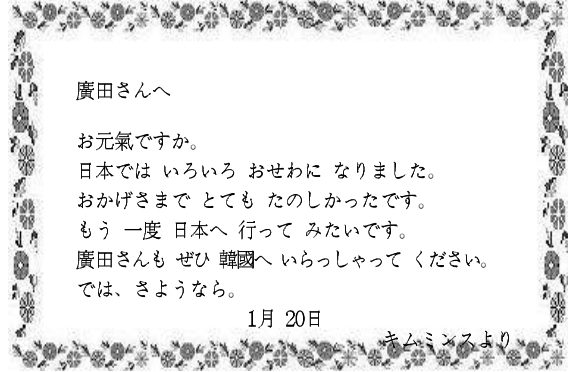 廣田さんへ
お元氣ですか。
日本では いろいろ おせわに なりました。
おかげさまで とても たのしかったです。
もう 一度 日本へ 行って みたいです。
廣田さんも ぜひ 韓國へ いらっしゃって ください。
では、さようなら。
1月 20日
キムミンスより